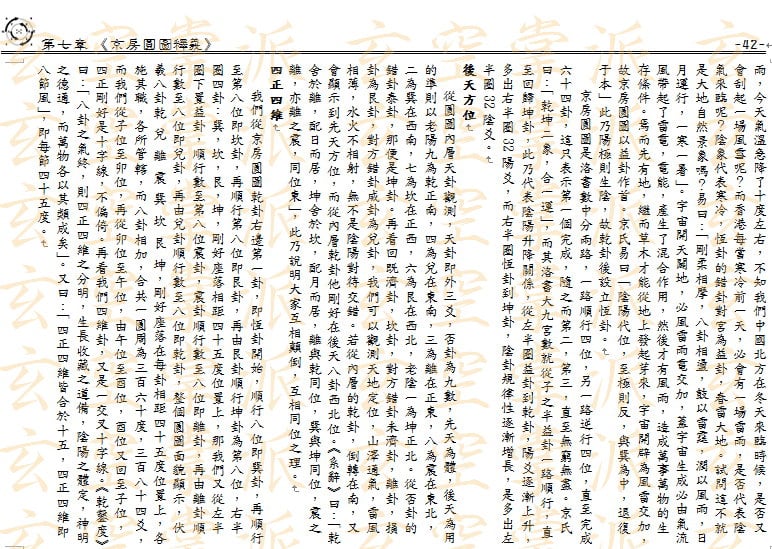 第七章 《京房圓圖釋義》
-42-
雨,今天氣溫急降了十度左右,不知我們中國北方在冬天來臨時候,是否又
會刮起一場風雪呢?而香港每當寒冷前一天,必會有一場雷雨,是否代表陰
氣來臨呢?陰象代表寒冷,恆卦的錯卦對宮為益卦,春雷大地。試問這不就
是大地自然景象嗎?易曰:「剛柔相摩,八卦相盪,鼓以雷霆,潤以風雨,日
月運行,一寒一暑」。宇宙開天闢地,必風雷雨電交加,蓋宇宙生成必由氣流
風帶起了雷電,電能,產生了混合作用,然後才有風雨,造成萬事萬物的生
存條件。焉而先有地,繼而草木才能從地上發起芽來,宇宙開辟為風雷交加,
故京房圓圖以益卦作首。京氏易曰「陰陽代位,至極則反,與巽為中,退復
于本」此乃陽極則生陰,故乾卦後設立恆卦。
京房圓圖是洛書數中分兩路,一路順行四位,另一路逆行四位,直至完成
六十四卦,這只表示第一個完成,隨之而第二,第三,直至無窮無盡。京氏
曰:「乾坤二象,合一運」,而其洛書大九宮數就從子之半益卦一路順行,直
至回歸坤卦,此乃代表陰陽升降關係,從左半圈益卦到乾卦,陽爻逐漸上升,
多出右半圈 32 陽爻,而右半圈恆卦到坤卦,陰卦規律性逐漸增長,是多出左
半圈 32 陰爻。
後天方位
從圓圖內層天卦觀測,天卦即外三爻,否卦為九數,先天為體,後天為用
的準則以老陽九為乾正南,四為兌在東南,三為離在正東,八為震在東北,
二為巽在西南,七為坎在正西,六為艮在西北,老陰一為坤正北。從否卦的
錯卦泰卦,那便是坤卦。再看回既濟卦,坎卦,對方錯卦未濟卦,離卦,損
卦為艮卦,對方錯卦咸卦為兌卦,我們可以觀測天地定位,山澤通氣,雷風
相薄,水火不相射,無不是陰陽對待交錯。若從內層的乾卦,倒轉在南,又
會顯示到先天方位,而從內層乾卦他剛好在後天八卦西北位。《系辭》曰:「乾
舍於離,配日而居,坤舍於坎,配月而居,離與乾同位,巽與坤同位,震之
離,亦離之震,同位東」,此乃說明大家互相顛倒,互相同位之理。
四正四維
我們從京房圓圖乾卦右邊第一卦,即恆卦開始,順行八位即巽卦,再順行
至第八位即坎卦,再順行第八位即艮卦,再由艮卦順行坤卦為第八位,右半
圈四卦:巽,坎,艮,坤,剛好座落相距四十五度位置上,那我們又從左半
圈下置益卦,順行數至第八位震卦,震卦順行數至八位即離卦,再由離卦順
行數至八位即兌卦,再由兌卦順行數至八位即乾卦,整個圓圖面貌顯示,伏
羲八卦乾 兌 離 震 巽 坎 艮 坤,剛好座落在每卦相距四十五度位置上,各
施其職,各所管轄,而八卦相加,合共一圓周為三百六十度,三百八十四爻,
而我們從子位至卯位,再從卯位至午位,由午位至酉位,酉位又回至子位,
四正剛好是十字線,不偏倚。再看我們四維卦,又是一交叉十字線。《乾鑿度》
曰:「八卦之氣終,則四正四維之分明,生長收藏之道備,陰陽之體定,神明
之德通,而萬物各以其類成矣」。又曰:「四正四維皆合於十五,四正四維即
八節風」,即每節四十五度。
玄空掌派